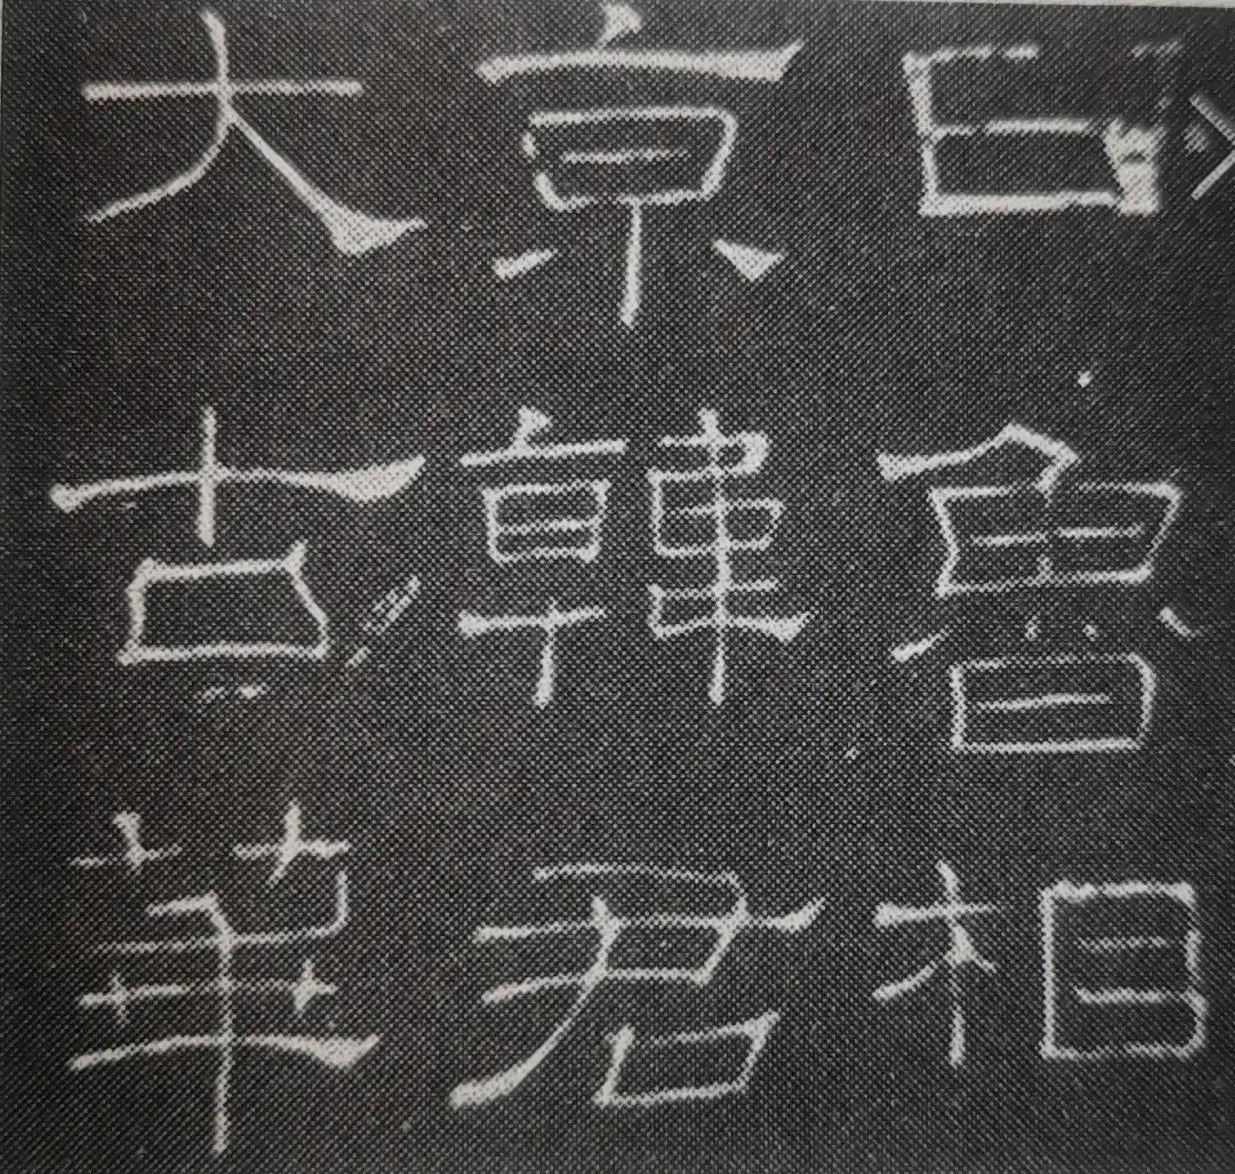 日魯相
京韓君
大古華